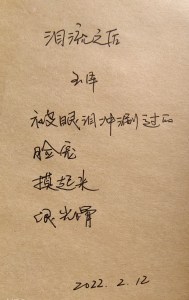 泪流之后
玉库
被眼泪冲涮过的
脸庞
摸起来
很光滑
2022.2.12